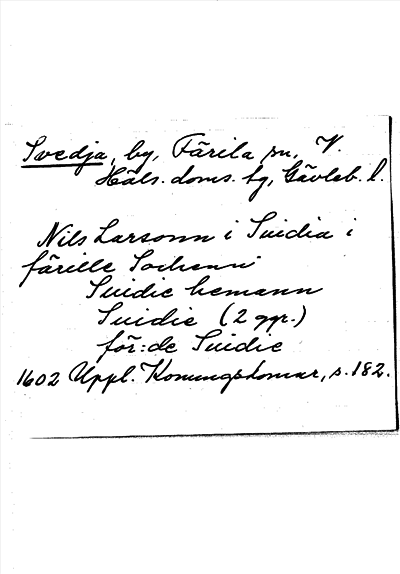 Svedja, by, Färila sn, V.
Häls. doms. hg, Gävleb. l.
Nils Larsonn i Suidia i
färille Sochenn
Suidie hemann
Suidie (2 ggr.)
för:de Suidie
1602 Uppl. Konungsdomar, s. 182.